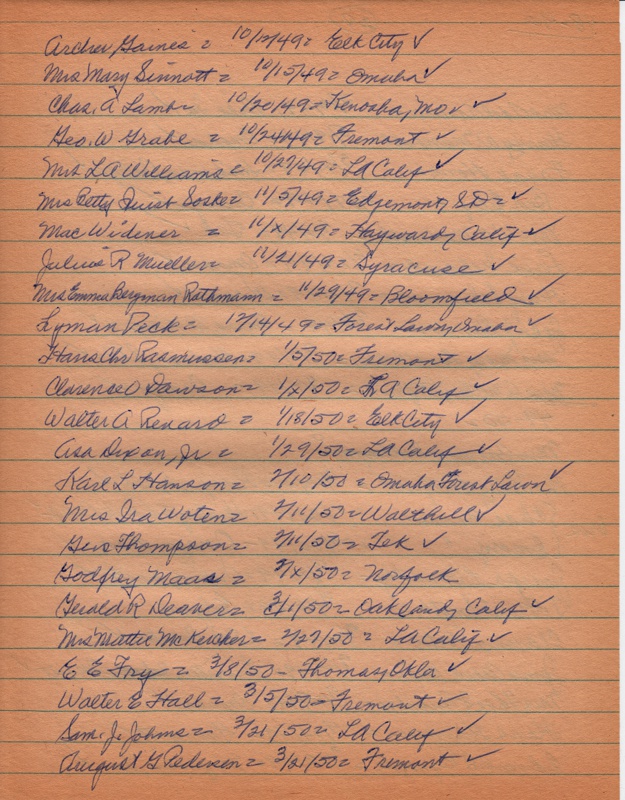 Archer Gaines = 10/12/49 = Elk City ✓
Mrs Mary Sinnott = 10/15/49 = Omaha ✓
Chas. A Lamb = 10/20/49 = Kenosha, Mo ✓
Geo. W Grabe = 10/24/49 = Fremont ✓
Mrs LA Williams = 10/27/49 = LA Calif ✓
Mrs Betty Quist Soske = 11/5/49 = Edgemont, SD = ✓
Mac Widener = 11/x/49 = Hayward, Calif ✓
Julius R Mueller = 11/21/49 = Syracuse ✓
Mrs Emma Bergman Rathmann = 11/29/49 = Bloomfield ✓
Lyman Peck = 12/14/49 = Forest Lawn, Omaha ✓
Hans Chr Rasmussen = 1/5/50 = Fremont ✓
Clarence O Dawson = 1/x/50 = LA Calif ✓
Walter A Renard = 1/18/50 = Elk City ✓
Asa Dixon, Jr = 1/29/50 = LA Calif ✓
Karl L Hanson = 2/10/50 = Omaha Forest Lawn ✓
Mrs Ira Woten = 2/11/50 = Walthill ✓
Gus Thompson = 2/11/50 = Tek ✓
Godfrey Maas = 2/x/50 = Norfolk
Gerald R Deaver = 3/1/50 = Oakland, Calif ✓
Mrs Mattie McKercher = 2/27/50 = LA Calif ✓
E E Fry = 3/8/50 – Thomas, Okla ✓
Walter E Hall = 3/5/50 = Fremont ✓
Sam. J. Johns = 3/21/50 = LA Calif ✓
August G Pedersen = 3/21/50 = Fremont ✓